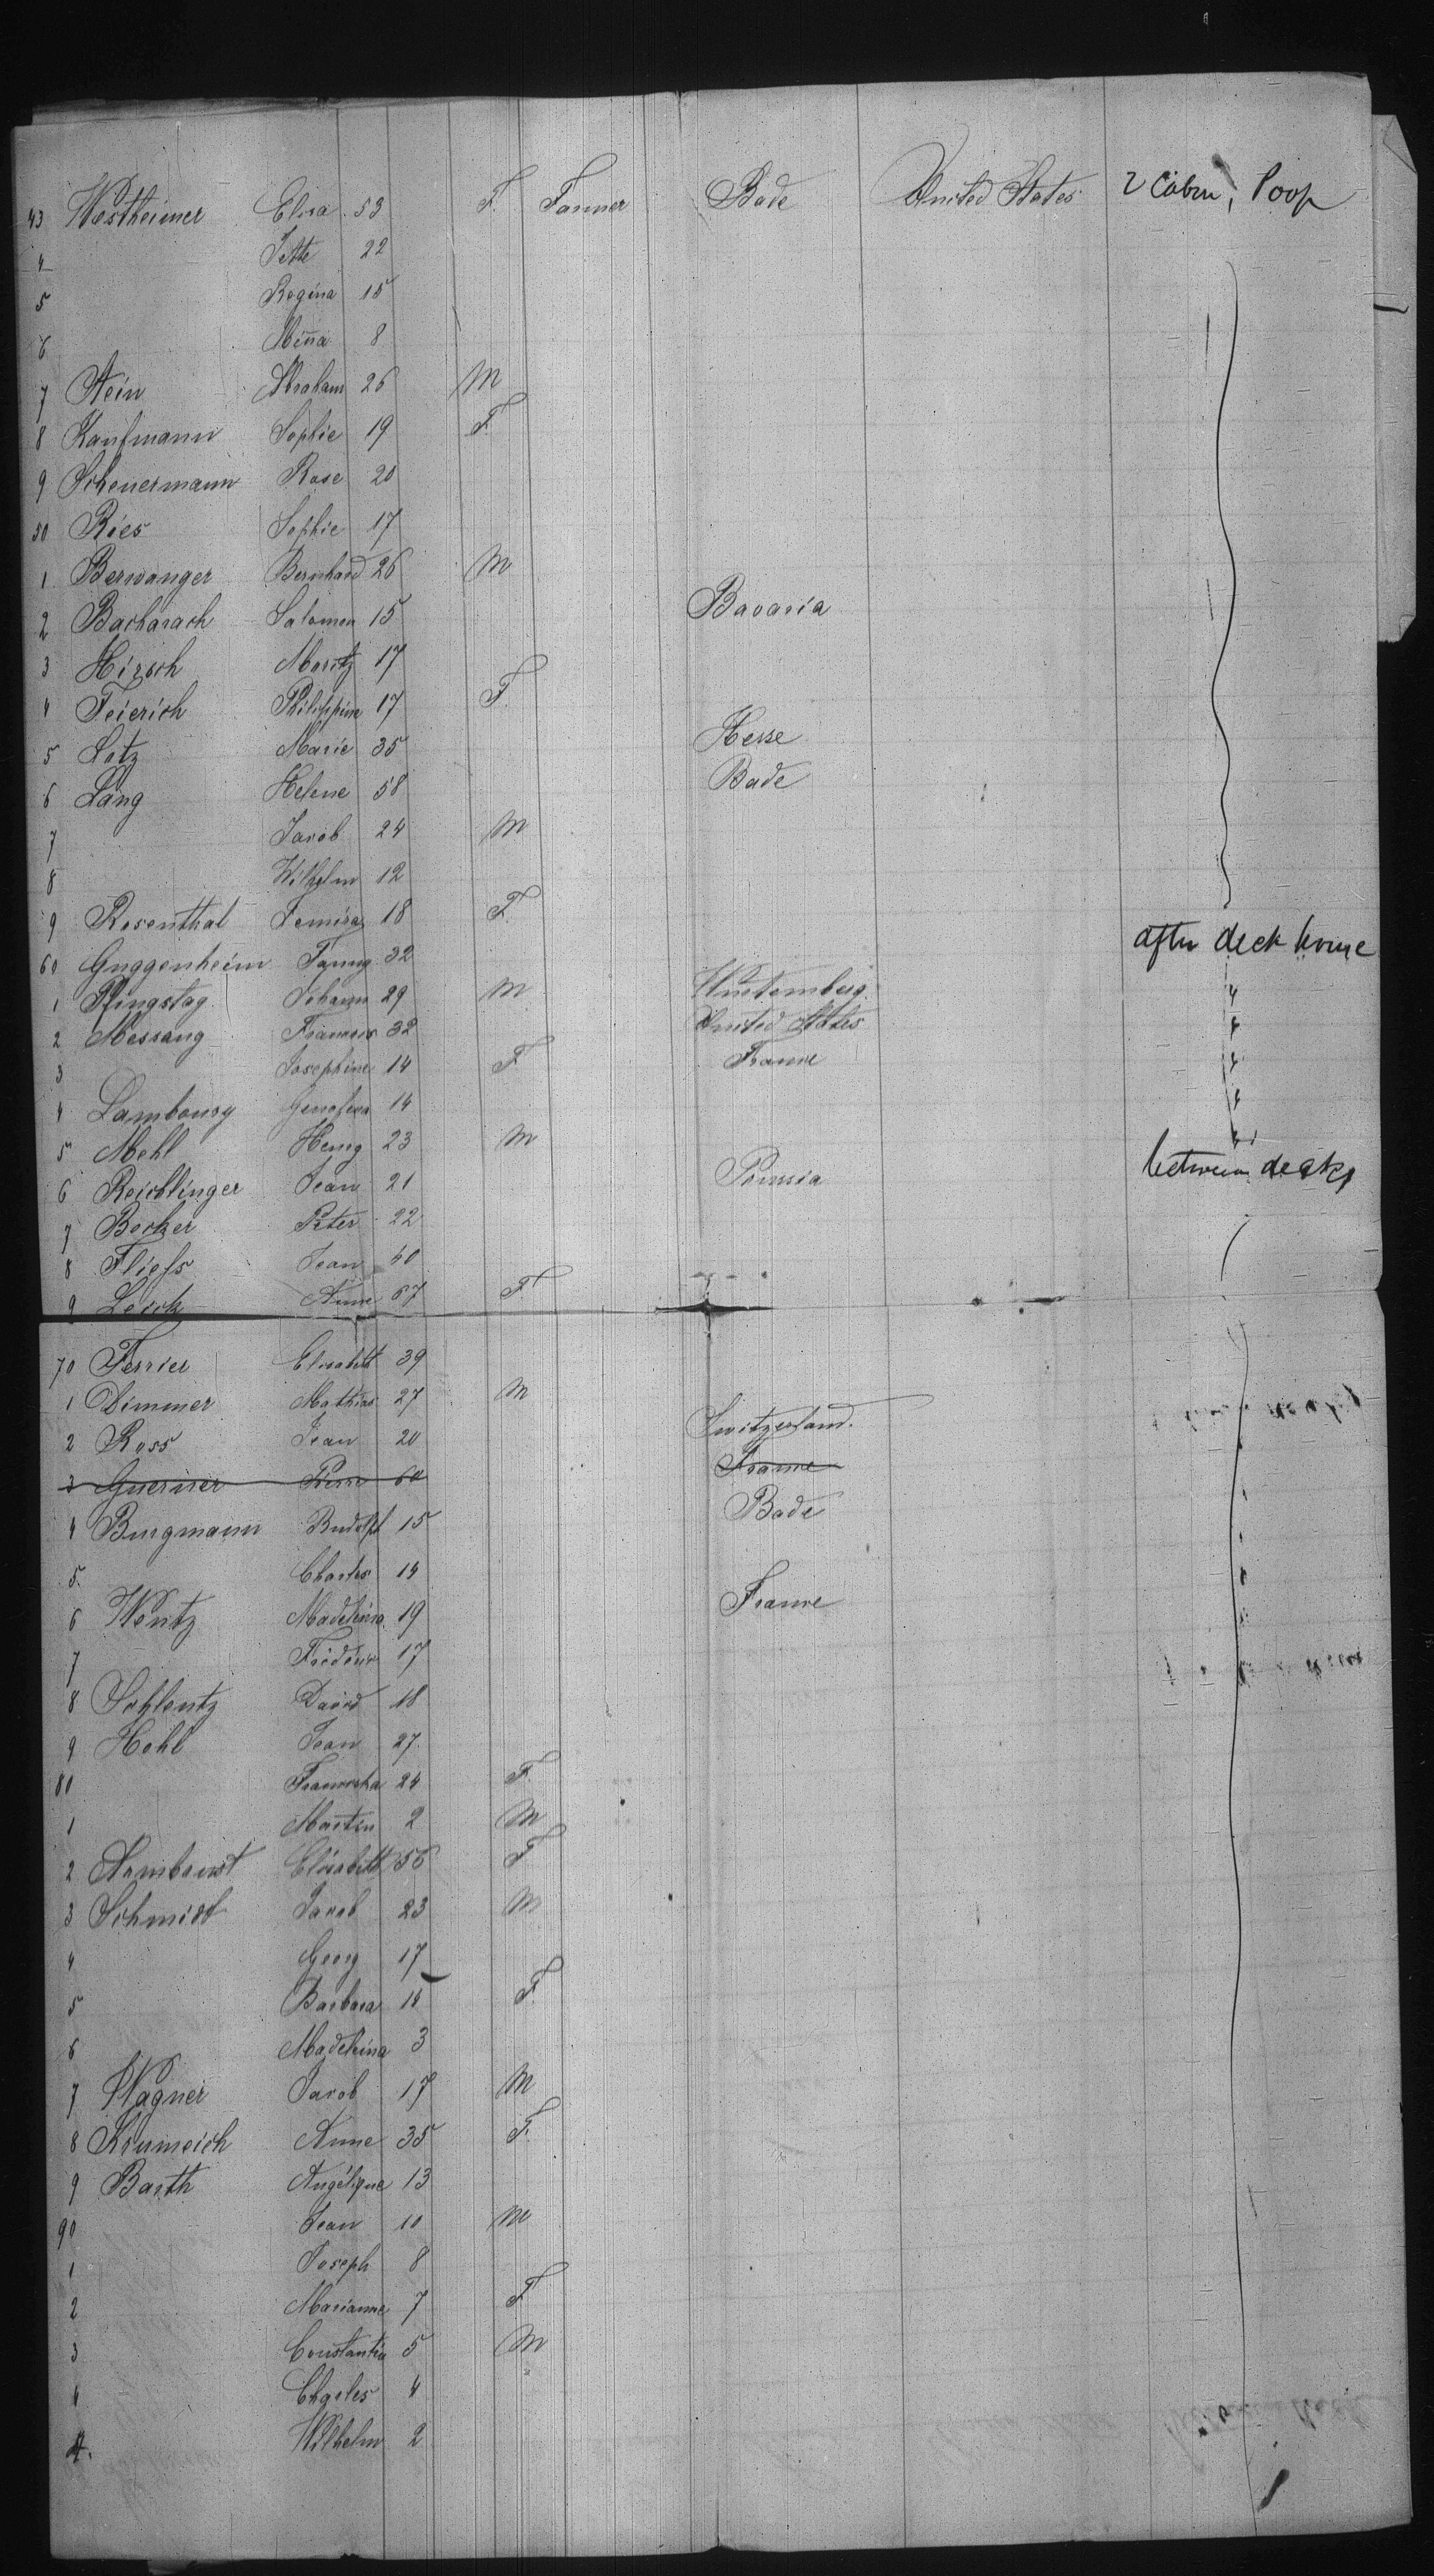 43 Westheimer Elisa 53 F. Farmer Bade United States 2 Cabin, Poop
4 Jette 22
5 Regina 15
6 Mina 8
7 Stein Abraham 26 M
8 Kaufmann Sophie 19 F.
9 Scheuermann Rose 20
50 Ries Sophie 17
1 Berwanger Bernhard 26 M
2 Bacharach Salomon 15 Bavaria
3 Hirsch Moritz 17
4 Feierich Philippine 17 F.
5 Lotz Marie 35 Hesse
6 Lang Helene 58 Bade
7 Jacob 24 M
8 Wilhelm 12
9 Rosenthal 18 F. after deck house
60 Guggenheim Fanny 32
1 Pfingstag Johann 29 M Wurtemberg
2 Messang Francois 32 United States
3 Josephine 14 F France
4 Lambourg Genofeva 14
5 Mehl Henry 23 M
6 Reichlinger Jean 21 Prussia between decks
7 Becker Peter 22
8 Fliess Jean 40
9 Lerch Anne 67 F.
70 Ferrier Elisabeth 39
1 Dimmer Mathias 27 M
2 Ross Jean 20 Switzerland.
3 Guerner Pierre 60 France
4 Burgmann Rudolf 15 Bade
5. Charles 14
6 Wentz Madeleina 19 France
7 Frédéric 17
8 Schlentz David 18
9 Hohl Jean 27.
80 Francisca 24 F.
1 Martin 2 M
2 Armbrust Elisabeth 56 F
3 Schmidt Jacob 23 M
4 Georg 17
5 Barbara 15 F.
6 Madeleina 3
7 Wagner Jacob 17 M
8 Krumeich Anne 35 F.
9 Barth Angélique 13
90 Jean 10 M
1 Joseph 8
2 Marianne 7 F
3 Constantin 5 M
4 Charles 4
Wilhelm 2